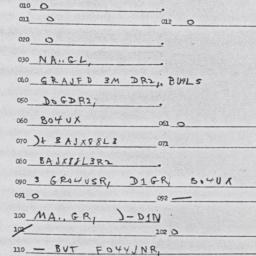 010 0
011 0 012 0
020 0
030 NA..GL,
040 GRAJFD 3M DR2,. BU4LS
050 DOGDR2,
060 BO4UX 061 0
070 )+ BAJX88L3 071
080 BAJX88L3R2
090 3 GRO4USR, D1GR, BO4UX
091 0 092 —
100 MA..GR, )-D1N
102 0
110 — BUT FO4YJNR,